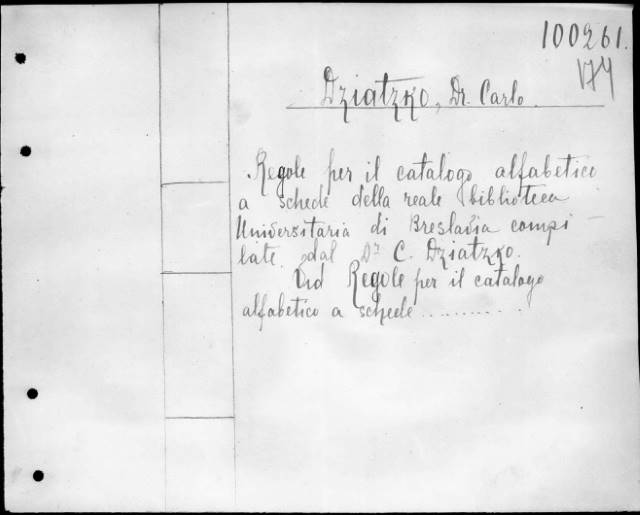 100261.
174
Dziatzko, Dr. Carlo.
Regole per il catalogo alfabetico
a schede della reale biblioteca
Universitaria di Breslavia compi-
late dal Dr C. Dziatzko.
Vid Regole per il catalogo
alfabetico a schede ............